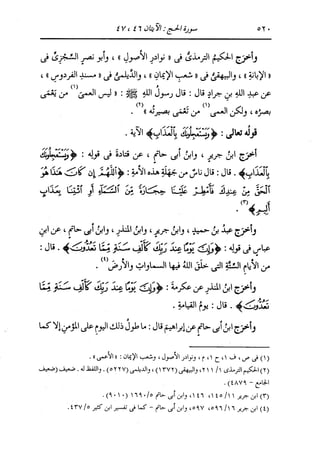 ٥٢٠ سورة الحج : الآيتان ٤٦ ، ٤٧
وأخرج الحكيمُ الترمذىُّ فى « نوادر الأصول » ، وأبو نصر السِّجْزىُّ فى
« الإبانة » ، والبيهقىُّ فى « شعب الإيمان » ، والديلمىُّ فى « مسند الفردوس » ،
عن عبد الله بن جراد قال : قال رسول الله ﷺ : « ليس العمى(١) من يَعْمَى
بصرُه ، ولكن العمى(١) من تَعْمَى بصيرتُه »(٢) .
قوله تعالى : ﴿وَيَسْتَعْجِلُونَكَ بِالْعَذَابِ﴾ الآية .
أخرج ابنُ جرير ، وابنُ أبى حاتم ، عن قتادة فى قوله : ﴿وَيَسْتَعْجِلُونَكَ
بِالْعَذَابِ﴾ . قال : قال ناسٌ من جهلةِ هذه الأمةِ : ﴿اللَّهُمَّ إِن كَانَ هَذَا هُوَ
الْحَقَّ مِنْ عِندِكَ فَأَمْطِرْ عَلَيْنَا حِجَارَةً مِّنَ السَّمَاءِ أَوِ ائْتِنَا بِعَذَابٍ
أَلِيمٍ﴾(٣) .
وأخرج عبدُ بنُ حميدٍ ، وابنُ جريرٍ ، وابنُ المنذرِ ، وابنُ أبى حاتمٍ ، عن ابنِ
عباسٍ فى قوله : ﴿وَإِنَّ يَوْمًا عِندَ رَبِّكَ كَأَلْفِ سَنَةٍ مِّمَّا تَعُدُّونَ﴾ . قال :
من الأيامِ الستةِ التى خلَق اللهُ فيها السماواتِ والأرضَ(٤) .
وأخرج ابنُ المنذرِ عن عكرمةَ : ﴿وَإِنَّ يَوْمًا عِندَ رَبِّكَ كَأَلْفِ سَنَةٍ مِّمَّا
تَعُدُّونَ﴾ . قال : يومُ القيامةِ .
وأخرج ابنُ أبى حاتمٍ عن إبراهيمَ قال : ما طولُ ذلك اليومِ على المؤمنِ إلا كما
(١) فى ص ، ف ١ ، ح ١ ، م ، ونوادر الأصول ، وشعب الإيمان : « الأعمى » .
(٢) الحكيم الترمذى ١/ ٢١١ ، والبيهقى (١٣٧٢) ، والديلمى (٥٢٢٧) . واللفظ له . ضعيف (ضعيف
الجامع - ٤٨٧٩) .
(٣) ابن جرير ١١/ ١٤٥ ، ١٤٦ ، وابن أبى حاتم ٥/ ١٦٩٠ (٩٠١٠) .
(٤) ابن جرير ١٦/ ٥٩٦ ، ٥٩٧ ، وابن أبى حاتم - كما فى تفسير ابن كثير ٥/ ٤٣٧ .